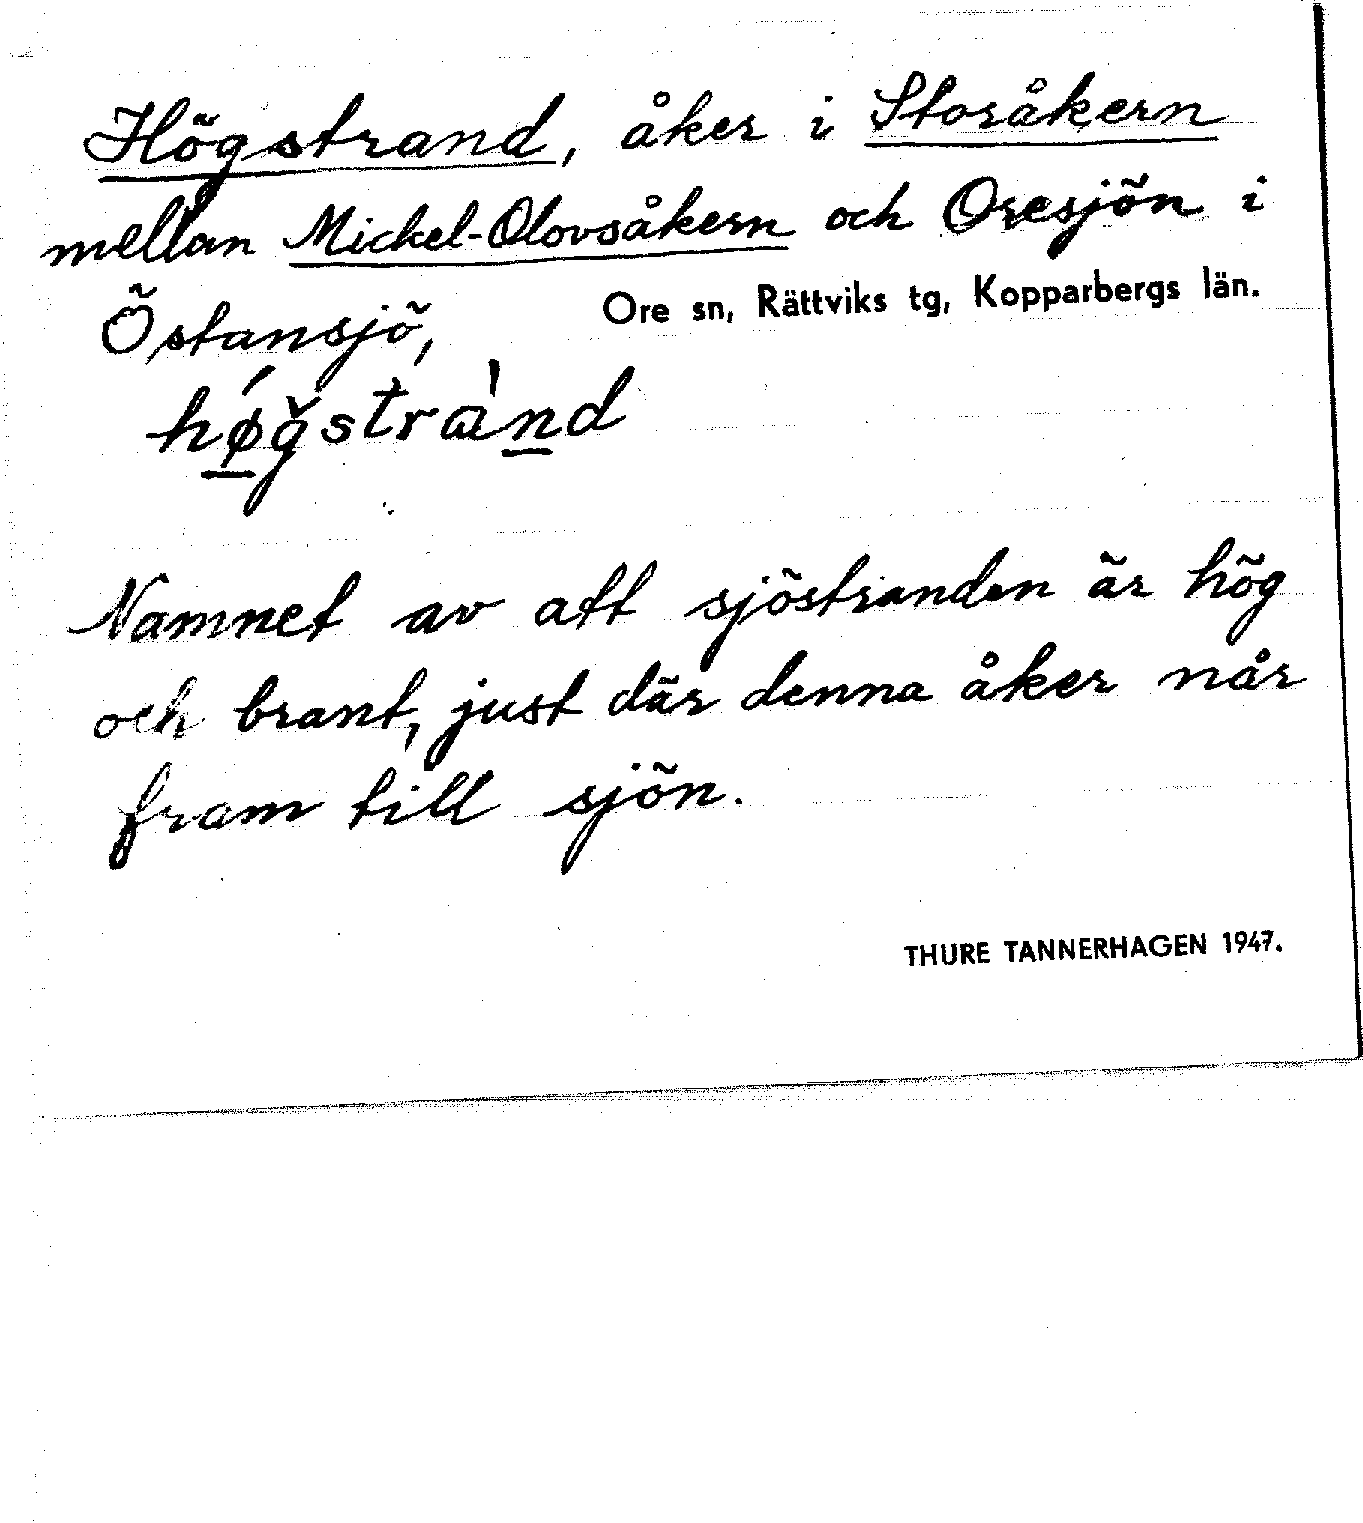 Högstrand, åker i Storåkern
mellan Mickel-Olovsåkern och Oresjön i
Östansjö, Ore sn, Rättviks tg, Kopparbergs län.
høgstrand
Namnet av att sjöstranden är hög
och brant, just där denna åker når
fram till sjön.
THURE TANNERHAGEN 1947.